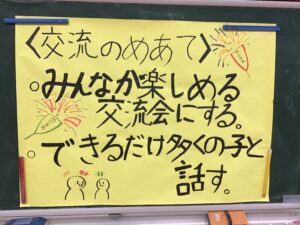 〈交流のめあて〉
。みんなが楽しめる
交流会にする。
。できるだけ多くの子と
話す。